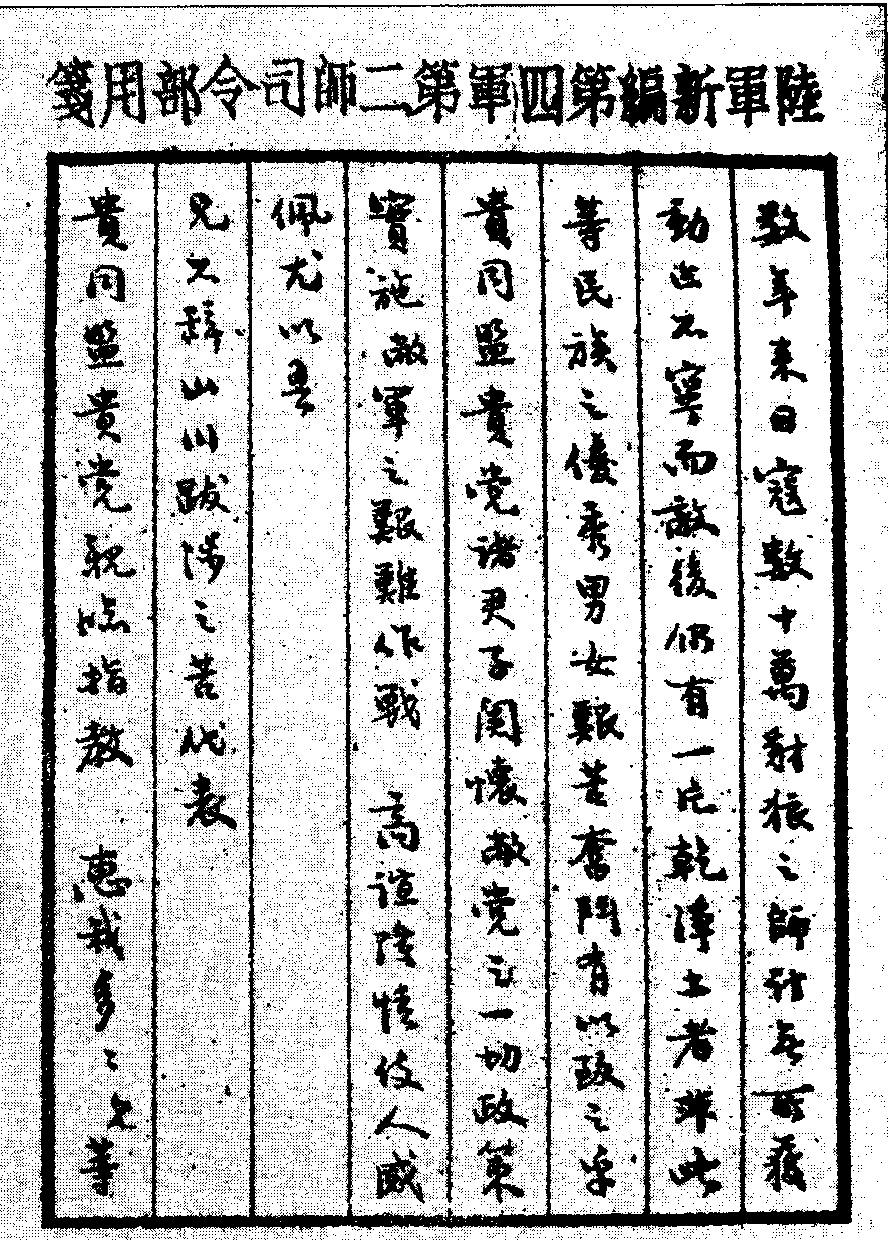 陸軍新編第四軍第二師司令部用箋
数年来日寇数十萬豺狼之師徒無所獲
動之不寧而敵後仍有一片乾淨土者非此
等民族之優秀男女艱苦奮鬥有以致之乎
貴同盟貴党諸君子関懷敝党之一切政策
實施敝軍之艱難作戦 高誼隆情使人感
佩尤以吾
兄不辞山川跋涉之苦代表
貴同盟貴党親臨指教 惠我多々兄等